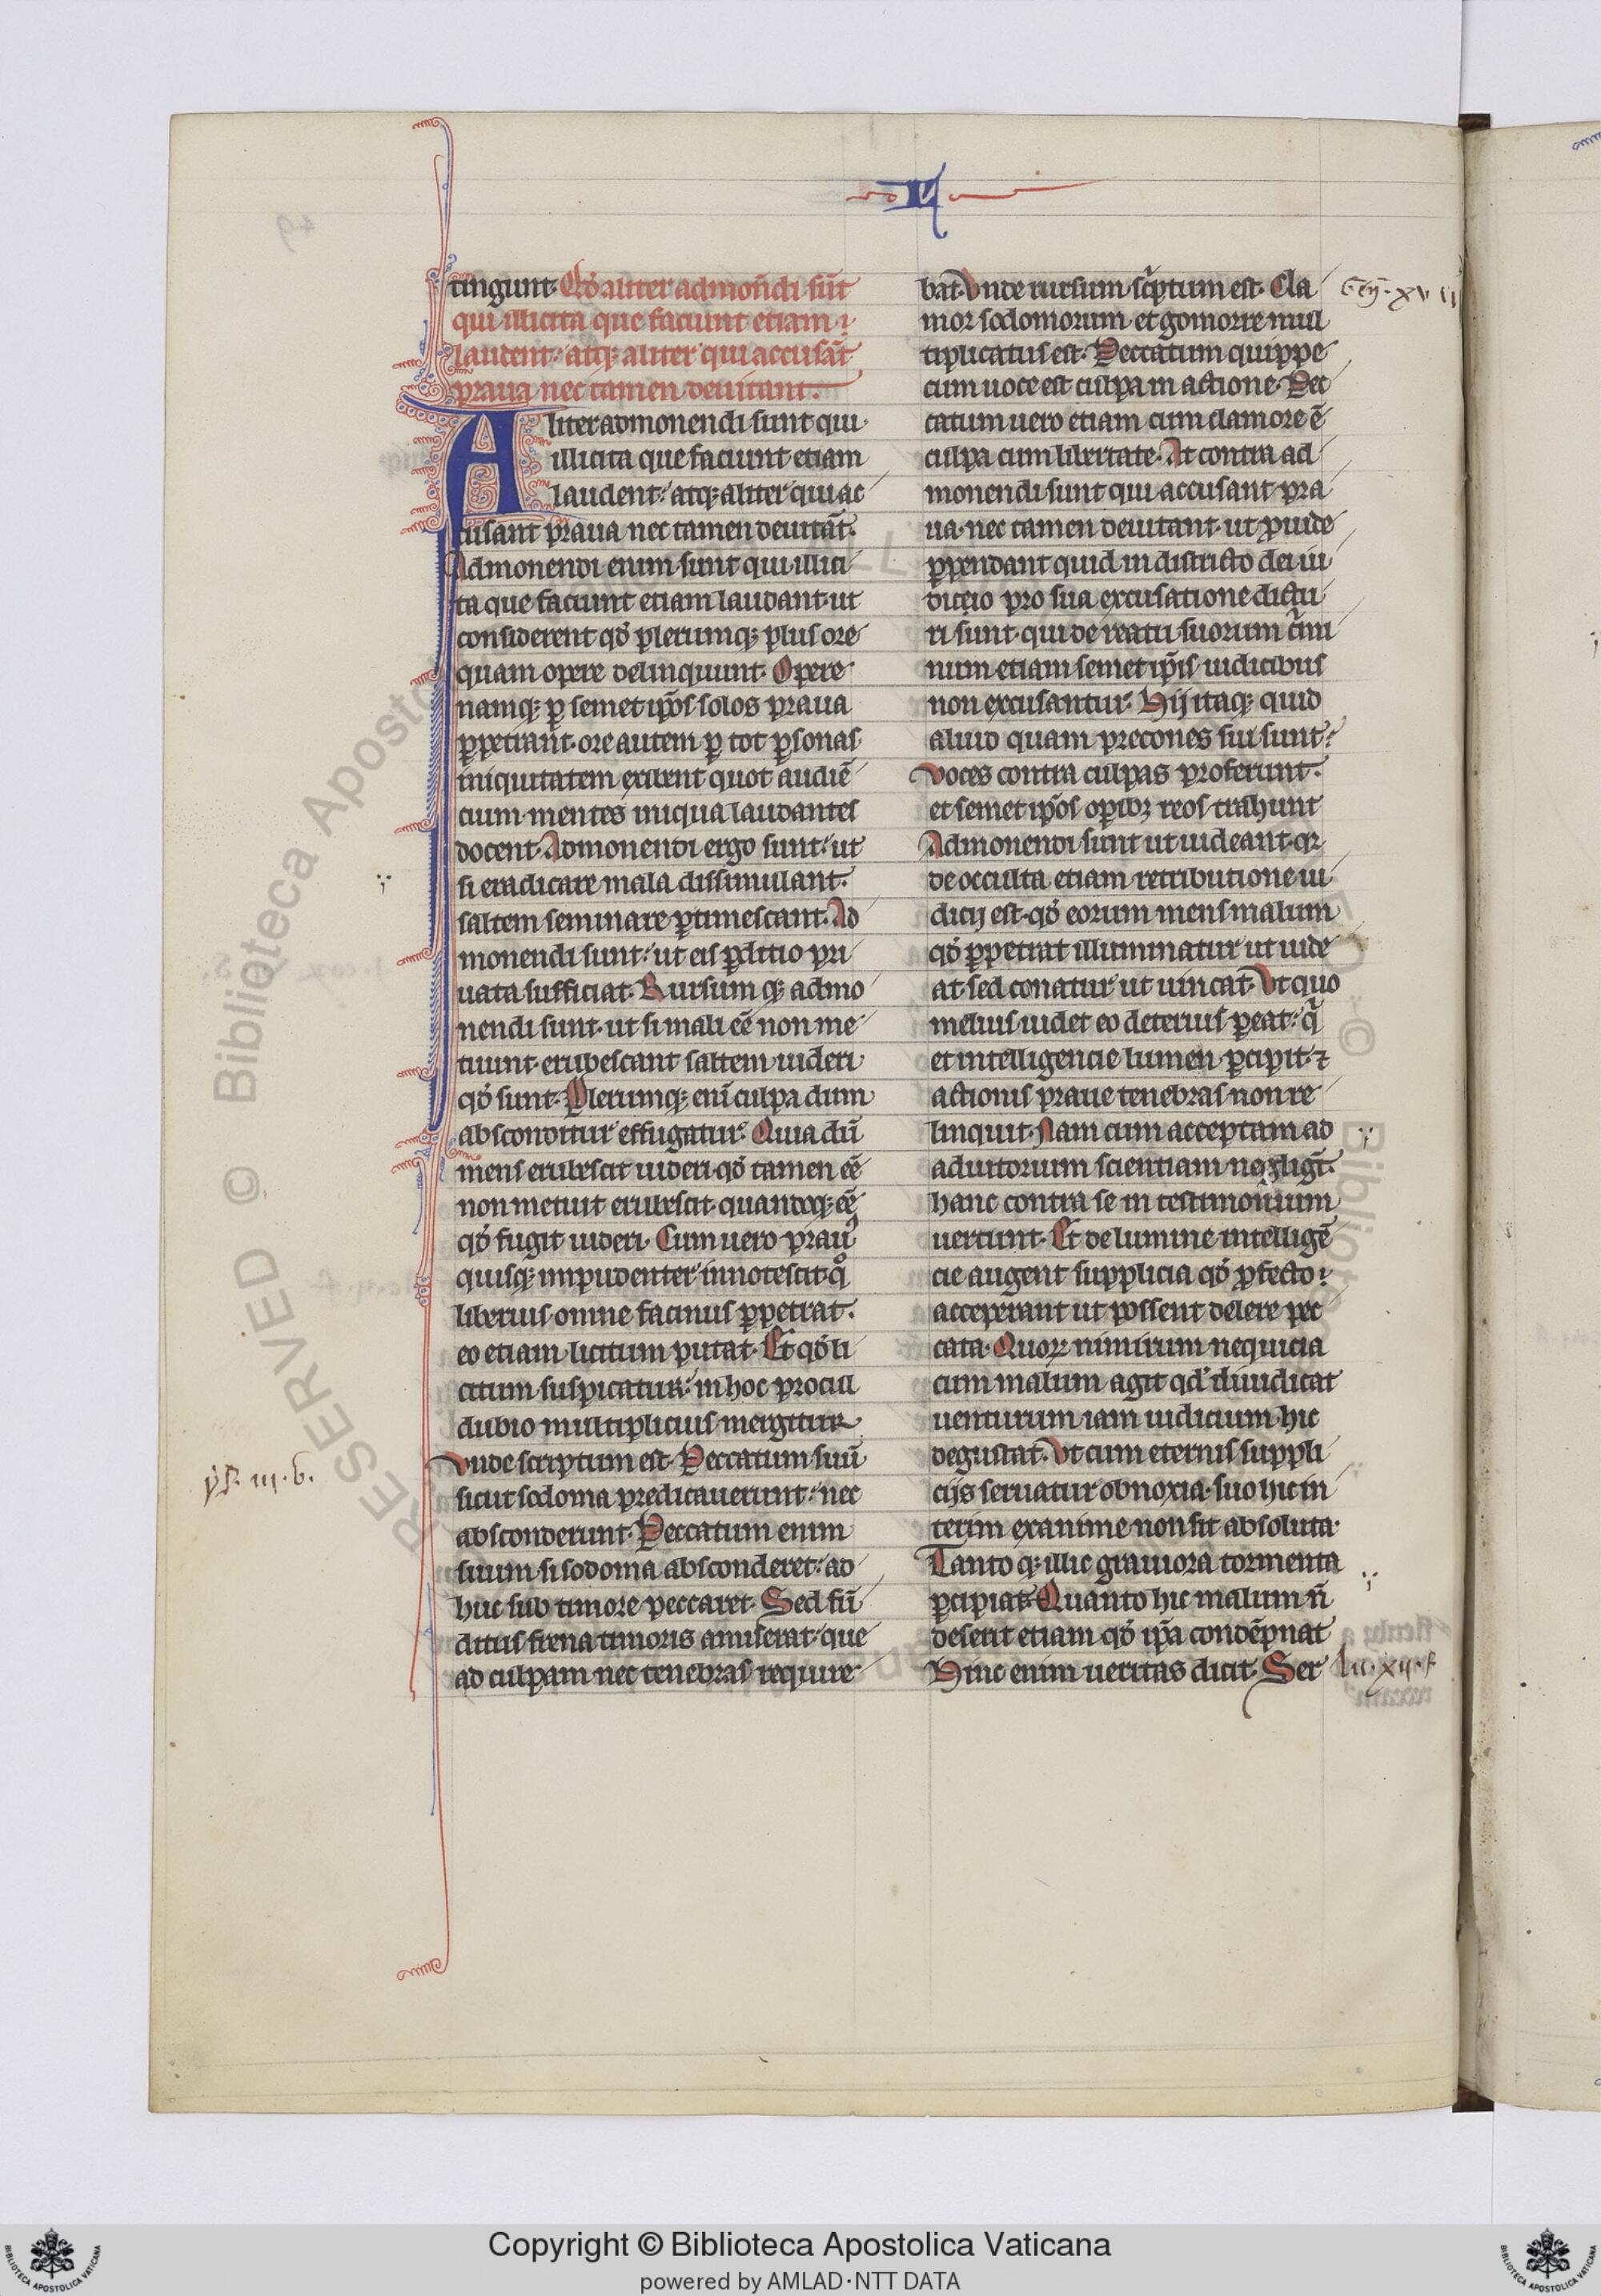 tingunt. Qd̄ aliter admon̄di sūt
qui illicita que faciunt etiam
laudent. atq; aliter qui accusāt
praua nec tamen deuitant.
Aliter admonendi sunt qui
illicita que faciunt etiam
laudent. atq; aliter qui ac
cusant praua nec tamen deuitāt.
Admonendi enim sunt qui illici
ta que faciunt etiam laudant ut
considerent qd̄ plerumq; plus ore
quam opere delinquunt. Opere
namq; ꝑ semet ip̄os solos praua
ꝑpetrant. ore autem ꝑ tot ꝑsonas
iniquitatem exibent quot audiē
cium mentes iniqua laudantes
docent. Admonendi ergo sunt. ut
si eradicare mala dissimulant.
saltem seminare ꝑtimescant. Ad
monendi sunt. ut eis ꝑditio pri
uata sufficiat. Rursumq; admo
nendi sunt. ut si mali eē non me
tuunt. erubescant saltem uideri
qd̄ sunt. Plerumq; eni̅ culpa dum
absconditur effugatur. Quia dū
mens erubescit uideri. qd̄ tamen eē
non metuit erubescit. quandoq; eē
qd̄ fugit uideri. Cum uero prau᷒
quisq; impudenter innotescit. qͦ
liberius omne facinus ꝑpetrat.
eo etiam licitum putat. Et qd̄ li
citum suspicatur. in hoc procul
dubio multiplicius mergitur
Vnde scriptum est. Peccatum suū
sicut sodoma predicauerunt. nec
absconderunt. Peccatum enim
suum si sodoma absconderet. ad
huc sub timore peccaret. Sed fū
ditus frena timoris amiserat. que
ad culpam nec tenebras require
ys. iii. b.
bat. Vnde rursum sc̄ptum est. Cla
mor sodomorum et gomorre mul
tiplicatus est. Peccatum quippe
cum uoce est culpa in actione. Pec
catum uero etiam cum clamore ē
culpa cum libertate. At contra ad
monendi sunt qui accusant pra
ua. nec tamen deuitant. ut ꝓuide
ꝑpendant quid in districto dei iu
dicio pro sua excusatione dictu
ri sunt. qui de reatu suorum c̄mi
num etiam semet ip̄is iudicibus
non excusantur. Hij itaq; quid
aliud quam precones sui sunt?
Voces contra culpas proferunt.
et semet ip̄os oꝑibꝫ reos trahunt
Admonendi sunt ut uideant. qꝛ
de occulta etiam retributione iu
dicij est. qd̄ eorum mens malum
qd̄ ꝑpetrat illuminatur ut uide
at. sed conatur ut uincat. Vt quo
melius uidet eo deterius ꝑeat. qͣ
et intelligencie lumen ꝑcipit. ⁊
actionis praue tenebras non re
linquit. Nam cum acceptam ad
adiutorium scientiam negligūt.
hanc contra se in testimonium
uertunt. Et de lumine intelligē
cie augent supplicia qd̄ ꝓfecto
acceperant ut possent delere pec
cata. Quoꝝ nimirum nequicia
cum malum agit qd̄ diiudicat
uenturum iam iudicium hic
degustat. Vt cum eternis suppli
cijs seruatur obnoxia. suo hic in
terim examine non sit absoluta.
Tantoq; illic grauiora tormenta
ꝑcipiat. Quanto hic malum n̄
deserit etiam qd̄ ip̄a condēpnat
Hinc enim ueritas dicit. Ser
lu. xij. f
RESERVED © Biblioteca Aposto
Copyright © Biblioteca Apostolica Vaticana
powered by AMLAD·NTT DATA